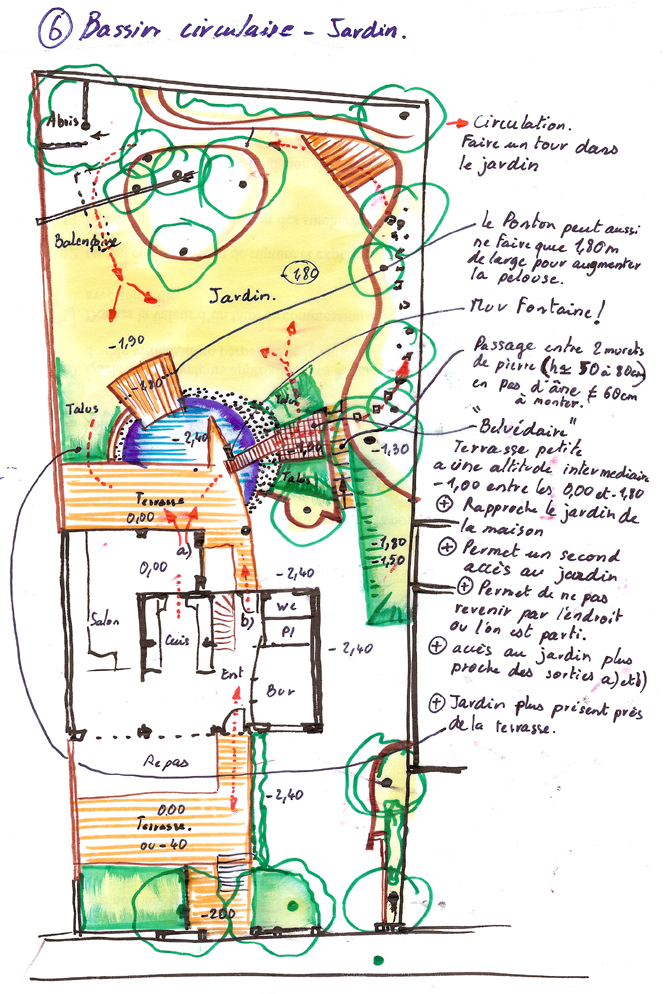 6 Bassin circulaire - Jardin.
Abris
Circulation.
Faire un tour dans
le jardin
le Ponton peut aussi
ne faire que 1,80m
de large pour augmenter
la pelouse.
Balençoire
-1,80
Jardin.
Mur Fontaine!
-1,90
Passage entre 2 murets
de pierre (h≤ 50 à 80cm)
en pas d'âne ≠ 60cm
à monter.
-1,80
Talus
Talus
-2,40
-1,00
-1,30
Talus
"Belvédaire"
Terrasse petite
a une altitude intermediaire
-1,00 entre les 0,00 et -1,80
+ Rapproche le jardin de
la maison
+ Permet un second
accès au jardin
+ Permet de ne pas
revenir par l'endroit
ou l'on est parti.
+ accès au jardin plus
proche des sorties a) et b)
+ Jardin plus présent près
de la terrasse.
Terrasse
0,00
a)
0,00
-2,40
-1,80
-1,50
Salon
Cuis
b)
WC
Pl
-2,40
Ent
Bur
Repas
-2,40
0,00
Terrasse.
ou -40
-200